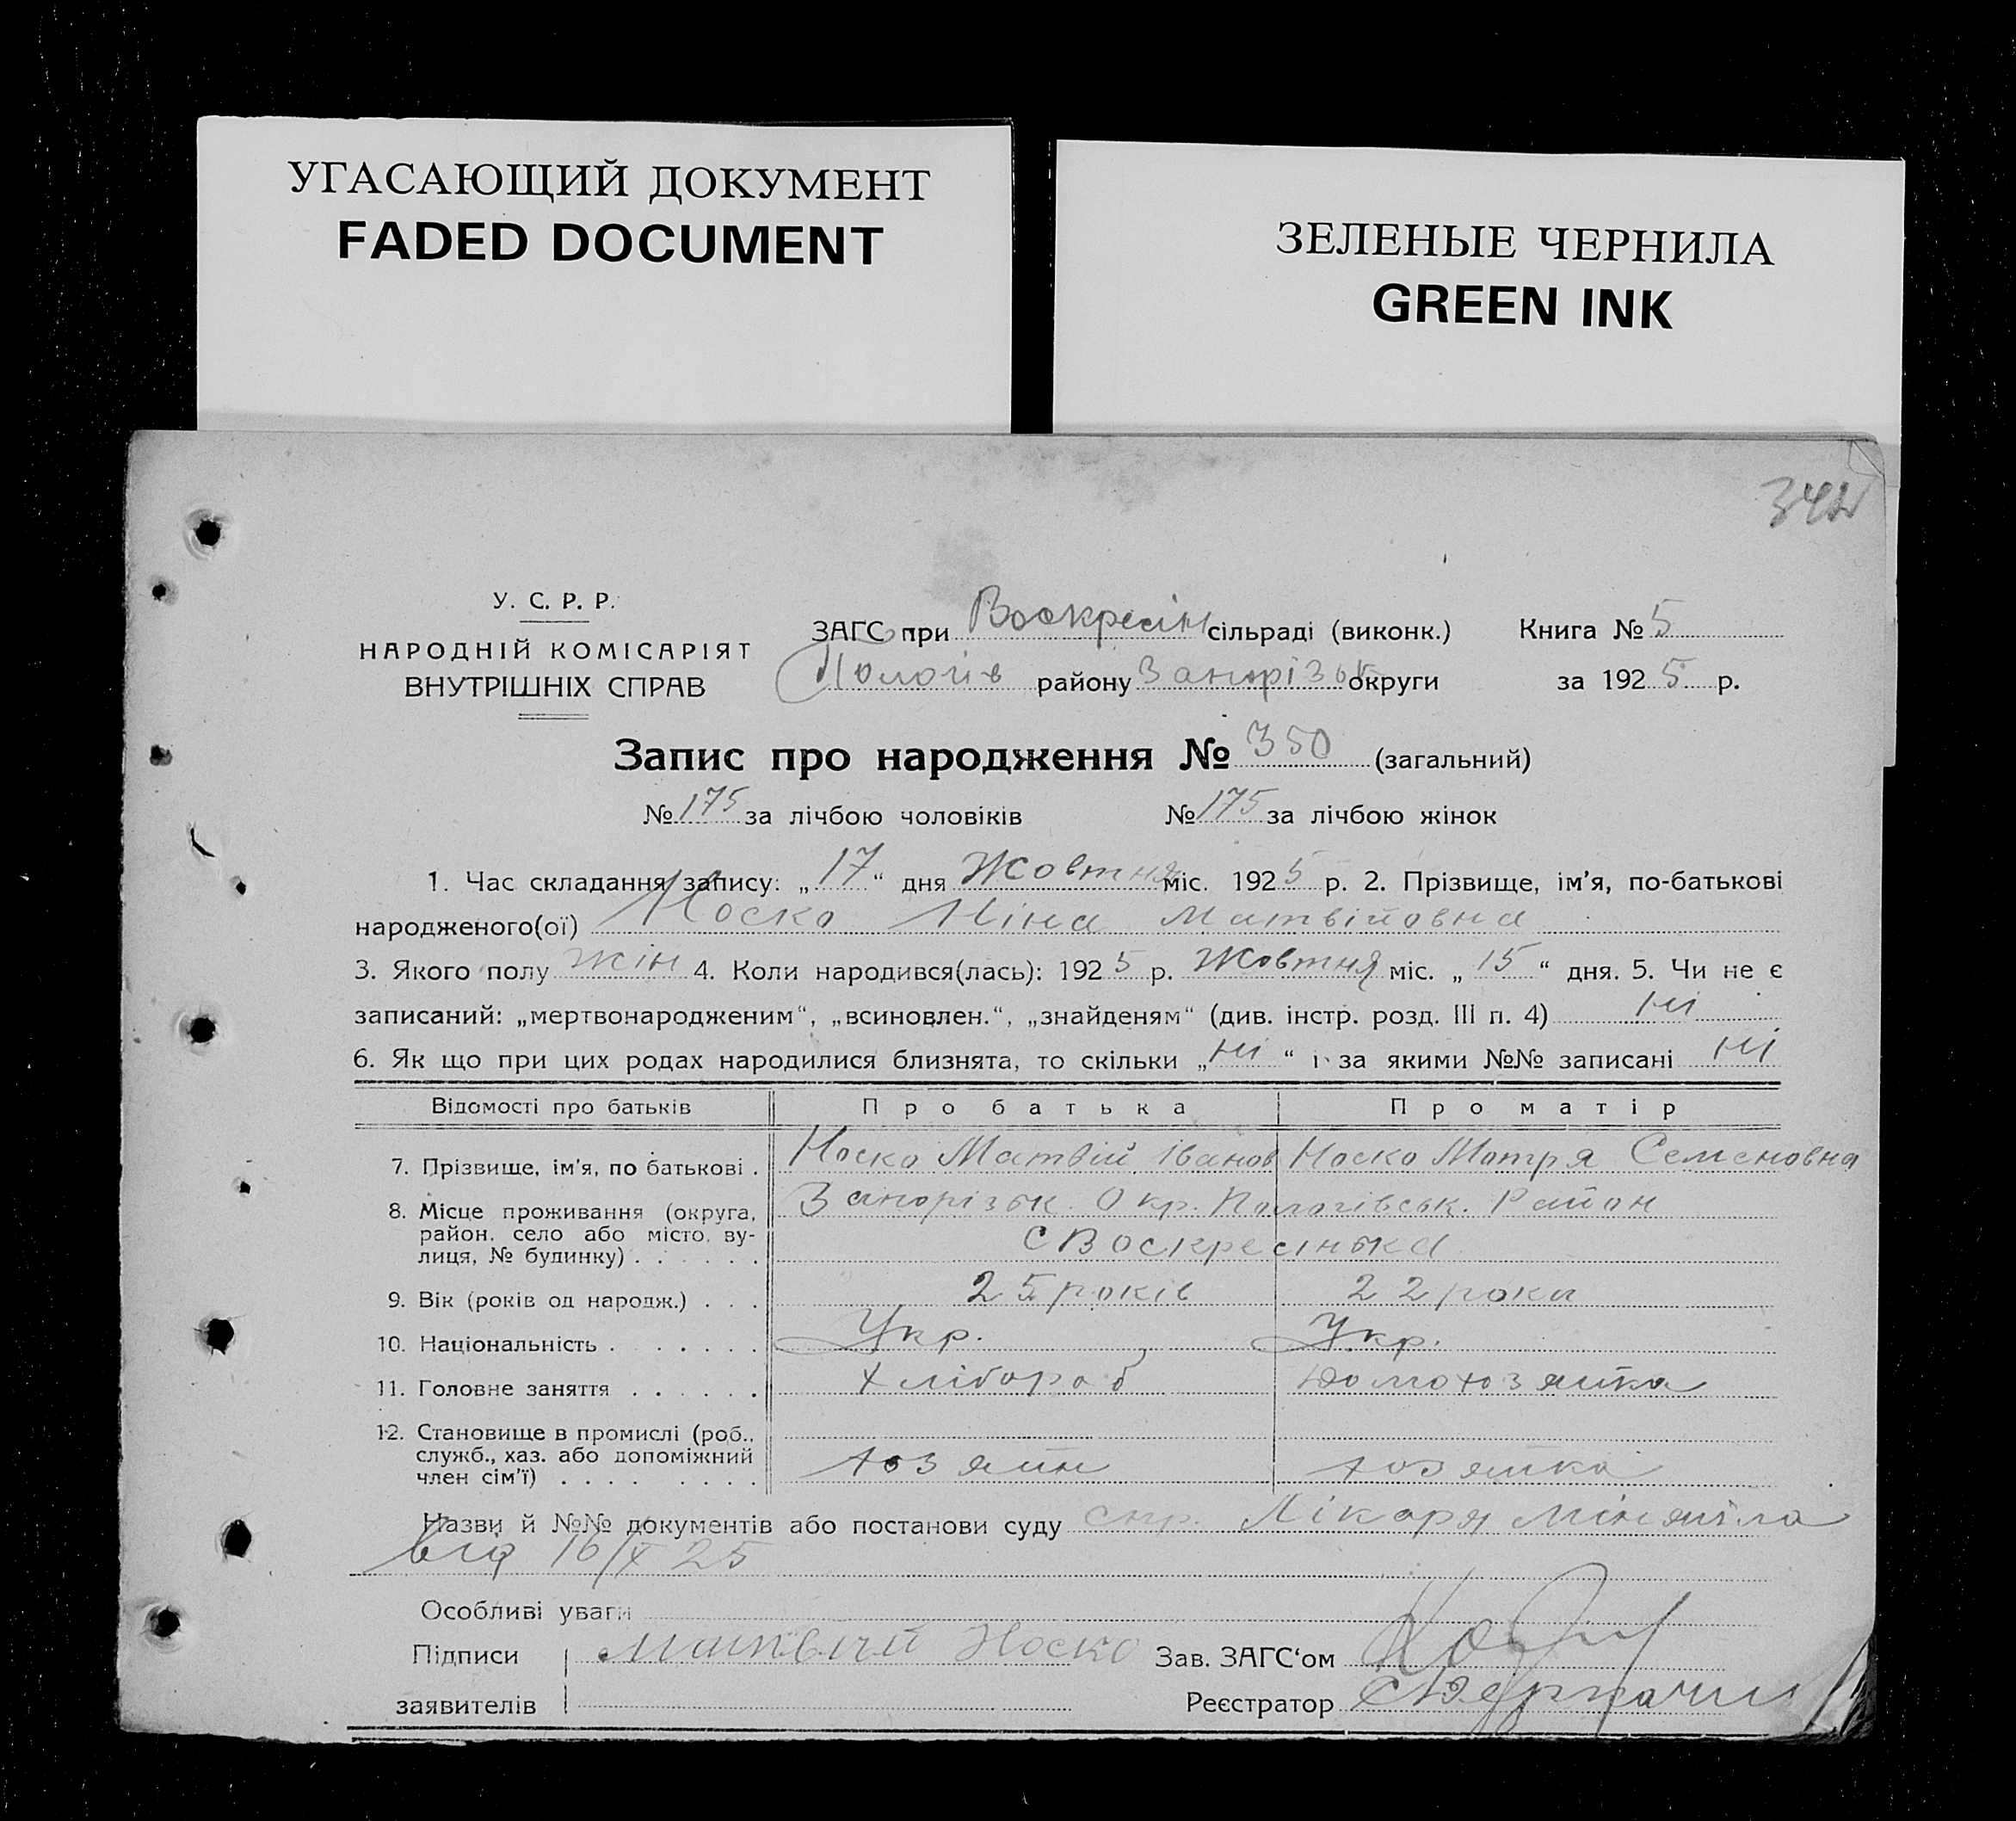 УГАСАЮЩИЙ ДОКУМЕНТ
FADED DOCUMENT
ЗЕЛЕНЫЕ ЧЕРНИЛА
GREEN INK
У. С. Р. Р.
НАРОДНІЙ КОМІСАРІЯТ
ВНУТРІШНІХ СПРАВ
ЗАГС при Воскресін сільраді (виконк.) Книга № 5
Пологів району Запорізьк округи за 1925 р.
Запис про народження № 350 (загальний)
№ 175 за лічбою чоловіків № 175 за лічбою жінок
1. Час складання запису: „17“ дня Жовтня міс. 1925 р. 2. Прізвище, ім'я, по-батькові
народженого(ої) Носко Ніна Матвійовна
3. Якого полу жін 4. Коли народився(лась): 1925 р. Жовтня міс. „15“ дня. 5. Чи не є
записаний: „мертвонародженим“, „всиновлен.“, „знайденям“ (див. інстр. розд. III п. 4) ні
6. Як що при цих родах народилися близнята, то скільки „ні“ і за якими №№ записані ні
Відомості про батьків Про батька Про матір
7. Прізвище, ім'я, по батькові . Носко Матвій Іванов Носко Мотря Семеновна
8. Місце проживання (округа, район, село або місто, вулиця, № будинку) . Запорізьк. Окр. Пологівськ. Район
С Воскресінька
9. Вік (років од народж.) . . . 25 років 22 роки
10. Національність . Укр. Укр.
11. Головне заняття . Хлібороб Домохозяйка
12. Становище в промислі (роб., служб., хаз. або допоміжний член сім'ї) . хозяйн хозяйка
Назви й №№ документів або постанови суду спр. Лікаря
від 16/X 25
Особливі уваги
Підписи Матвий Носко Зав. ЗАГС'ом
заявителів Реєстратор